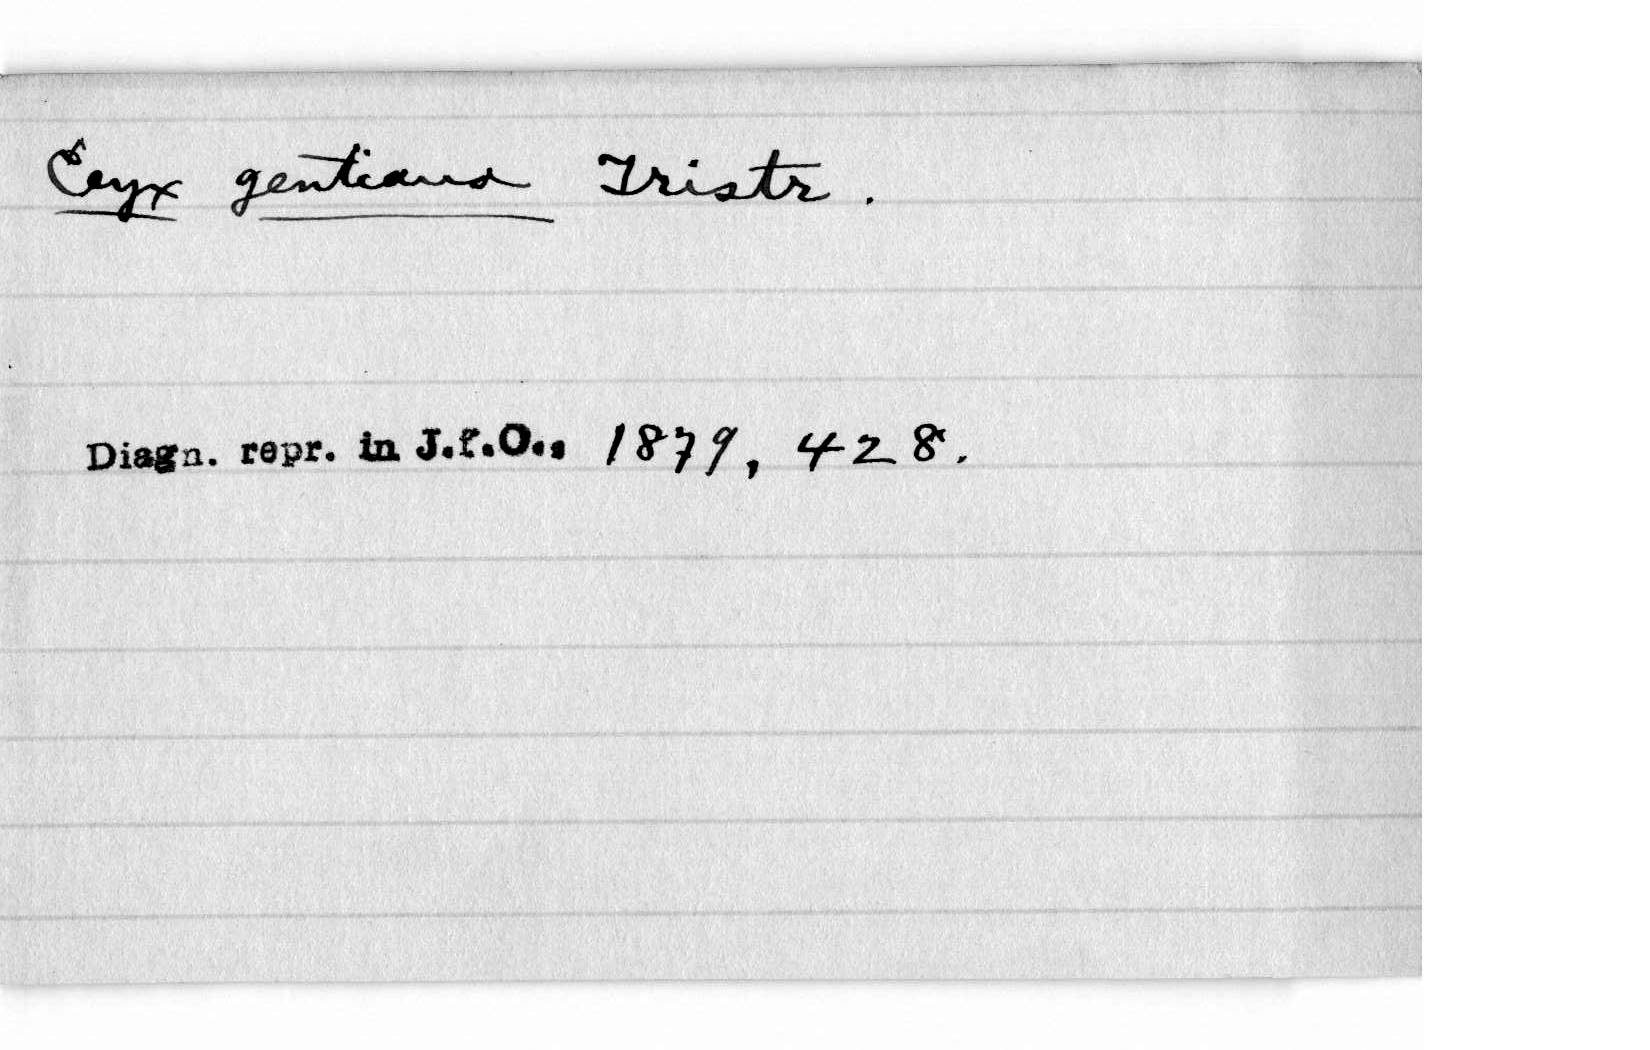 Ceyx gentiana Tristr.
Diagn. repr. in J.f.O., 1879, 428.